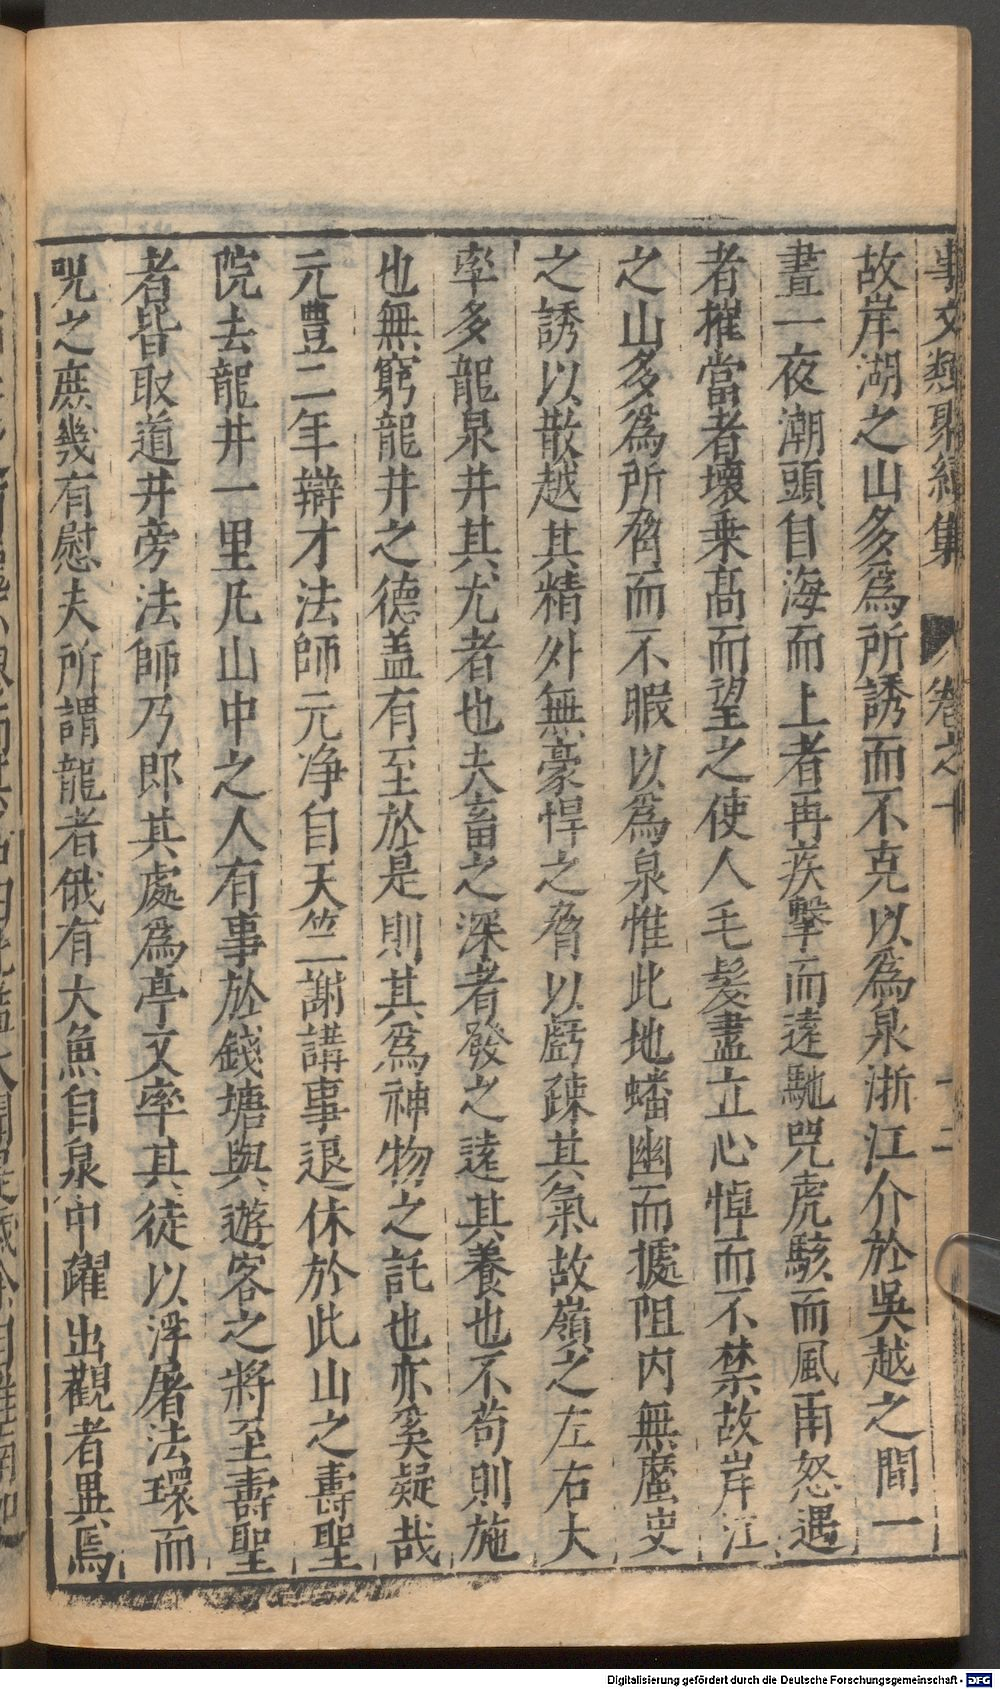 事文類聚續集 卷之十 十二
故岸湖之山多爲所誘而不克以爲泉浙江介於吳越之間一
晝一夜潮頭自海而上者再疾擊而遠馳兕虎駭而風雨怒遇
者摧當者壞乗髙而望之使人毛髪盡立心悼而不禁故岸江
之山多爲所脅而不暇以爲泉惟此地蟠幽而據阻内無靡
之誘以散越其精外無豪悍之脅以虧疎其氣故嶺之左右大
率多龍泉井其尤者也夫畜之深者發之遠其養也不苟則施
也無窮龍井之德盖有至於是則其爲神物之託也亦奚疑哉
元豊二年辯才法師元净自天竺謝講事退休於此山之壽聖
院去龍井一里凡山中之人有事於錢塘與遊客之將至壽聖
者皆取道井旁法師乃即其處爲亭又率其徒以浮屠法環而
咒之庶幾有慰夫所謂龍者俄有大魚自泉中躍出觀者異焉
Digitalisierung gefördert durch die Deutsche Forschungsgemeinschaft - DFG